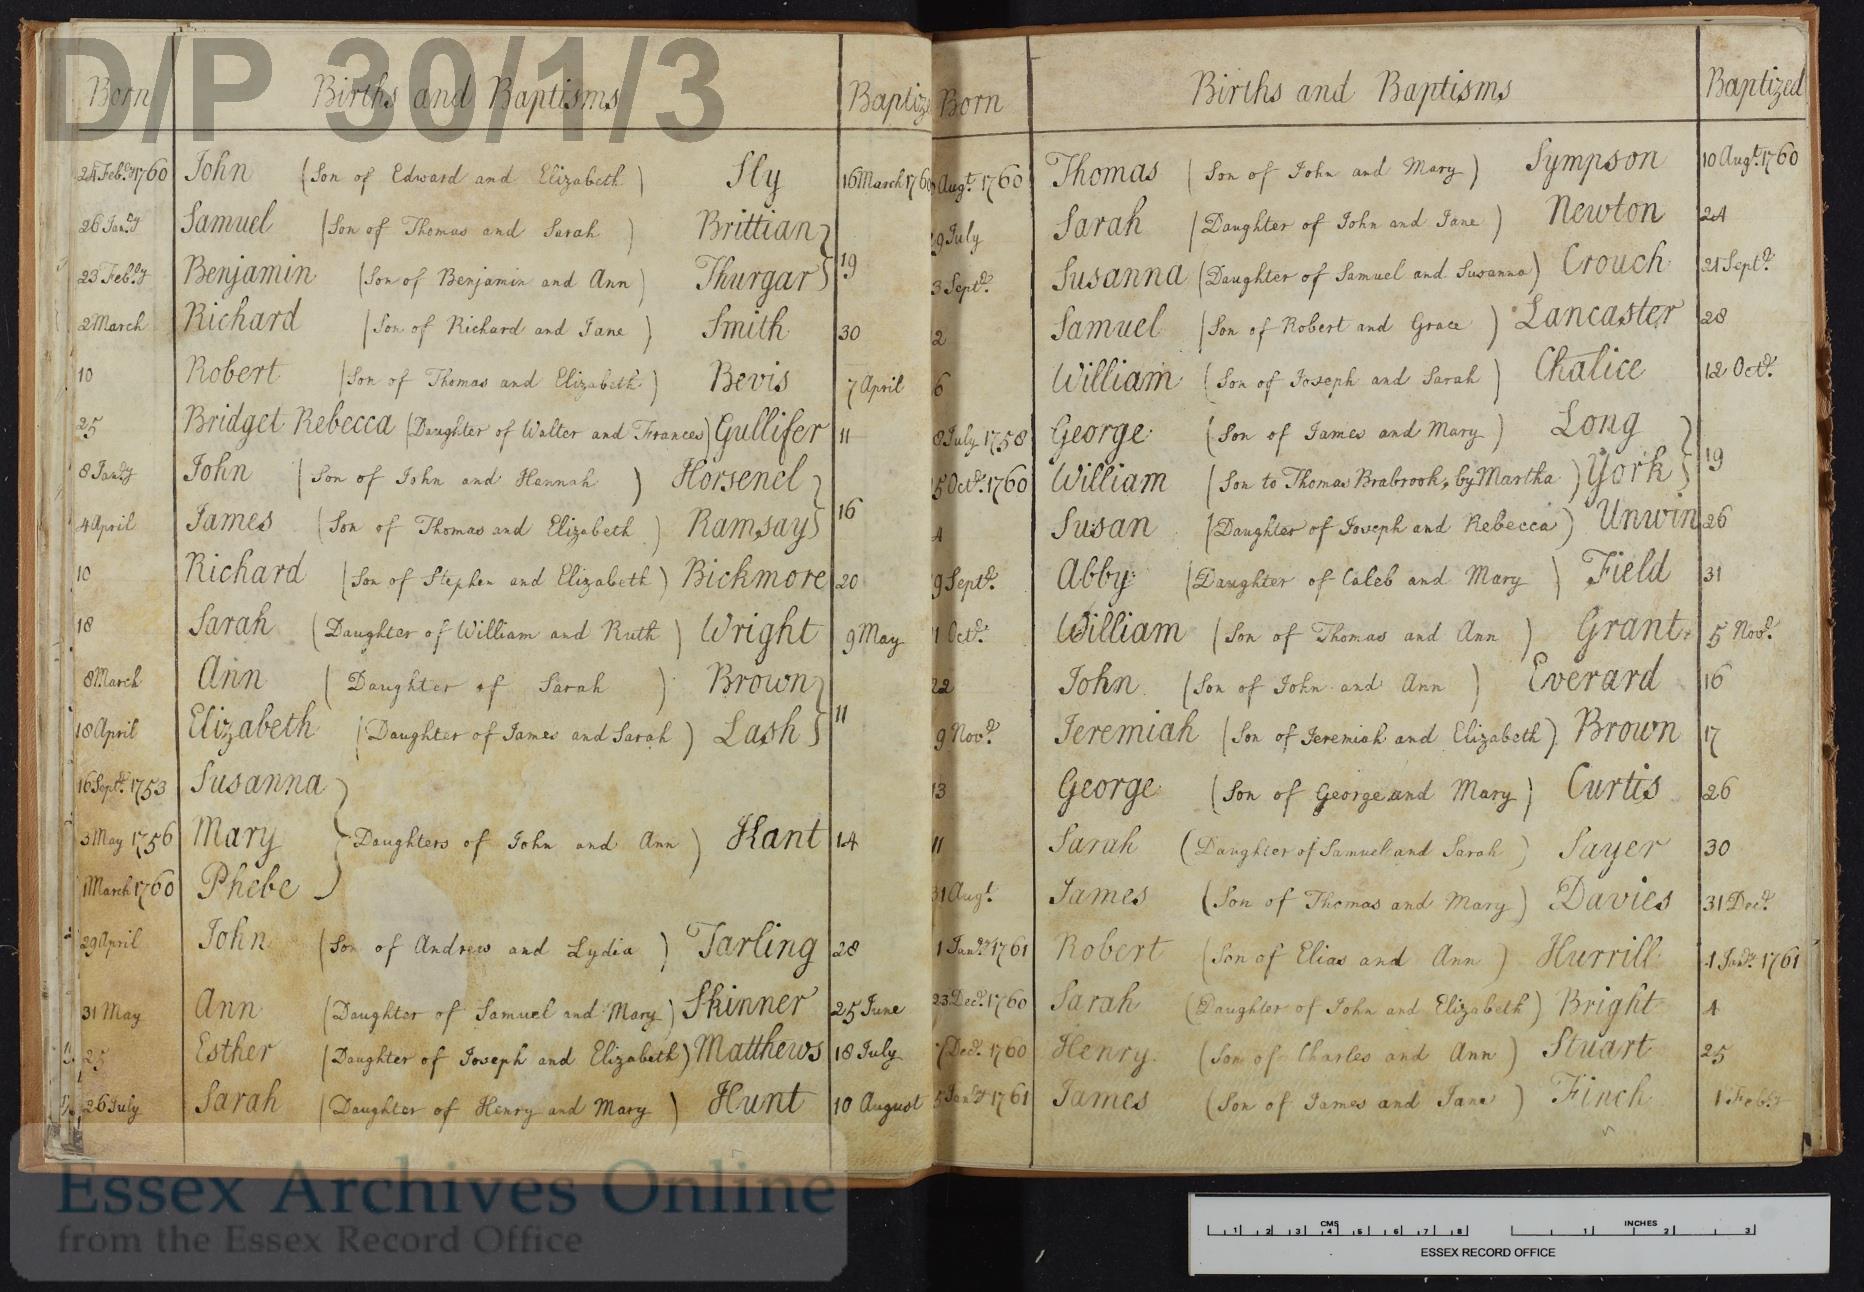 D/P 30/1/3
Born Births and Baptisms Baptize
24 Feb.y 1760 John (Son of Edward and Elizabeth) Sly 16 March 1760
26 Jan.y Samuel (Son of Thomas and Sarah) Brittian
23 Feb.y Benjamin (Son of Benjamin and Ann) Thurgar 19
2 March Richard (Son of Richard and Jane) Smith 30
10 Robert (Son of Thomas and Elizabeth) Bevis 7 April
25 Bridget Rebecca (Daughter of Walter and Frances) Gullifer 11
8 Jan.y John (Son of John and Hannah) Horsenel
4 April James (Son of Thomas and Elizabeth) Ramsay 16
10 Richard (Son of Stephen and Elizabeth) Bickmore 20
18 Sarah (Daughter of William and Ruth) Wright 9 May
8 March Ann (Daughter of Sarah) Brown
18 April Elizabeth (Daughter of James and Sarah) Lash 11
16 Sept.r 1753 Susanna
3 May 1756 Mary Daughters of John and Ann) Kant 14
1 March 1760 Phebe
29 April John (Son of Andrew and Lydia) Tarling 28
31 May Ann (Daughter of Samuel and Mary) Skinner 25 June
25 Esther (Daughter of Joseph and Elizabeth) Matthews 18 July
26 July Sarah (Daughter of Henry and Mary) Hunt 10 August
Born Births and Baptisms Baptized
Aug.t 1760 Thomas (Son of John and Mary) Sympson 10 Aug.t 1760
9 July Sarah (Daughter of John and Jane) Newton 24
3 Sept.r Susanna (Daughter of Samuel and Susanna) Crouch 21 Sept.r
2 Samuel (Son of Robert and Grace) Lancaster 28
6 William (Son of Joseph and Sarah) Chalice 12 Oct.r
8 July 1758 George (Son of James and Mary) Long
5 Oct.r 1760 William (Son to Thomas Brabrook, by Martha) York 19
4 Susan (Daughter of Joseph and Rebecca) Unwin 26
9 Sept.r Abby (Daughter of Caleb and Mary) Field 31
1 Oct.r William (Son of Thomas and Ann) Grant 5 Nov.r
22 John (Son of John and Ann) Everard 16
9 Nov.r Jeremiah (Son of Jeremiah and Elizabeth) Brown 17
13 George (Son of George and Mary) Curtis 26
11 Sarah (Daughter of Samuel and Sarah) Sayer 30
31 Aug.t James (Son of Thomas and Mary) Davies 31 Dec.r
1 Jan.y 1761 Robert (Son of Elias and Ann) Hurrill 1 Jan.y 1761
23 Dec.r 1760 Sarah (Daughter of John and Elizabeth) Bright 4
7 Dec.r 1760 Henry (Son of Charles and Ann) Stuart 25
5 Jan.y 1761 James (Son of James and Jane) Finch 1 Feb.y
Essex Archives Online
from the Essex Record Office
CMS INCHES
1 2 3 4 5 6 7 8 1 2 3
ESSEX RECORD OFFICE